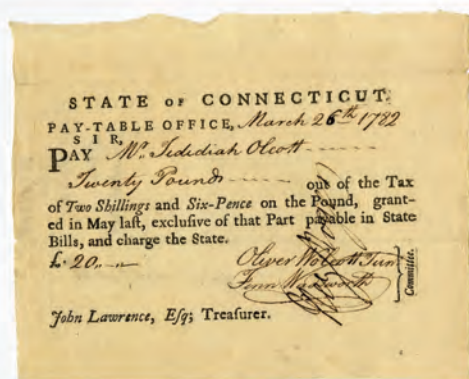 STATE OF CONNECTICUT.
PAY-TABLE OFFICE, March 26th 1782
SIR,
PAY Mr. Jedidiah Olcott
Twenty Pounds out of the Tax
of Two Shillings and Six-Pence on the Pound, grant-
ed in May laſt, excluſive of that Part payable in State
Bills, and charge the State.
£. 20,,
Oliver Wolcott Junr
Fenn Wadsworth
Committee.
John Lawrence, Eſq; Treaſurer.